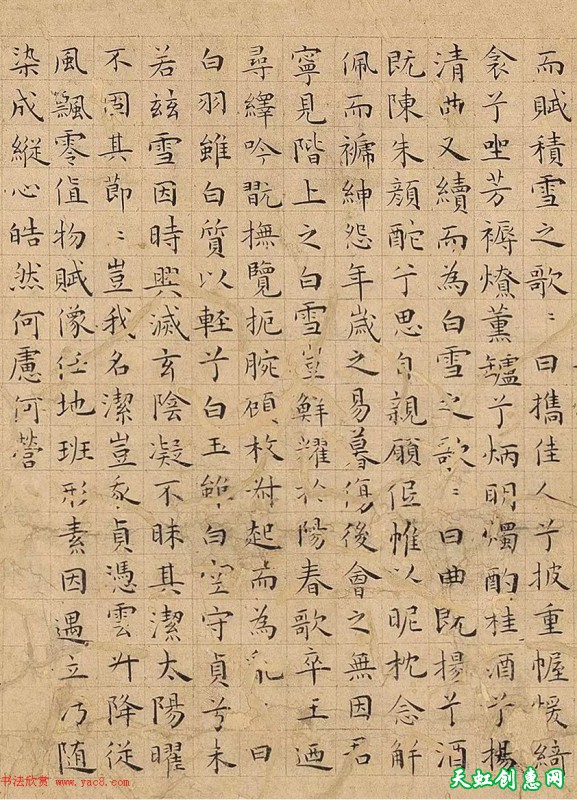 而賦積雪之歌〻曰攜佳人兮披重幄煖綺
衾兮坐芳褥燎薰爐兮炳明燭酌桂酒兮揚
清曲又續而為白雪之歌〻曰曲既揚兮酒
既陳朱顏酡兮思自親願低帷以昵枕念解
佩而褫紳怨年歲之易暮傷後會之無因君
寧見階上之白雪豈鮮耀於陽春歌卒王迺
尋繹吟翫撫覽扼腕顧枚叔起而為亂曰
白羽雖白質以輕兮白玉雖白空守貞兮未
若兹雪因時興滅玄陰凝不昧其潔太陽曜
不固其節〻豈我名潔豈我貞憑雲升降從
風飄零值物賦像任地班形素因遇立乃隨
染成縱心皓然何慮何營
书法欣赏 www.yac8.com
天虹创惠网